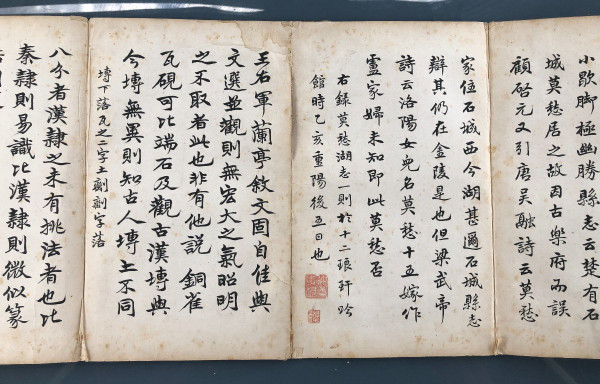 小歇脚極幽勝縣志云楚有石
城莫愁居之故因古樂府而誤
顧启元又引唐吳融詩云莫愁
家住石城西今湖甚邇石城縣志
辯其仍在金陵是也但梁武帝
詩云洛陽女兒名莫愁十五嫁作
盧家婦未知即此莫愁否
右錄莫愁湖志一則於十二琅玕吟
館時乙亥重陽後五日也
王右軍蘭亭敘文固自佳與
文選並觀則無宏大之氣昭明
之不取者此也非有他說 銅雀
瓦硯可比端石及觀古漢塼與
今塼無異則知古人塼土不同
塼下落瓦之二字土字落
八分者漢隸之未有挑法者也比
秦隸則易識比漢隸則微似篆